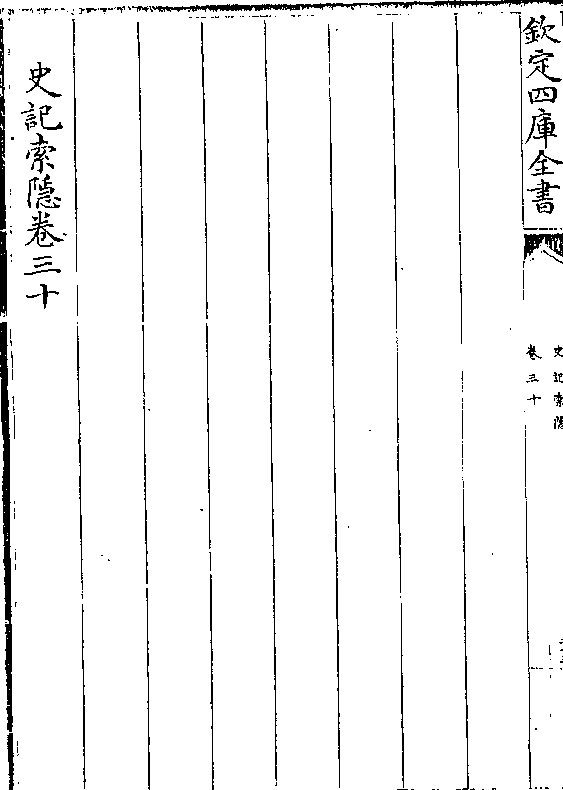 欽定四庫全書
史記索隱
卷三十
史記索隱卷三十